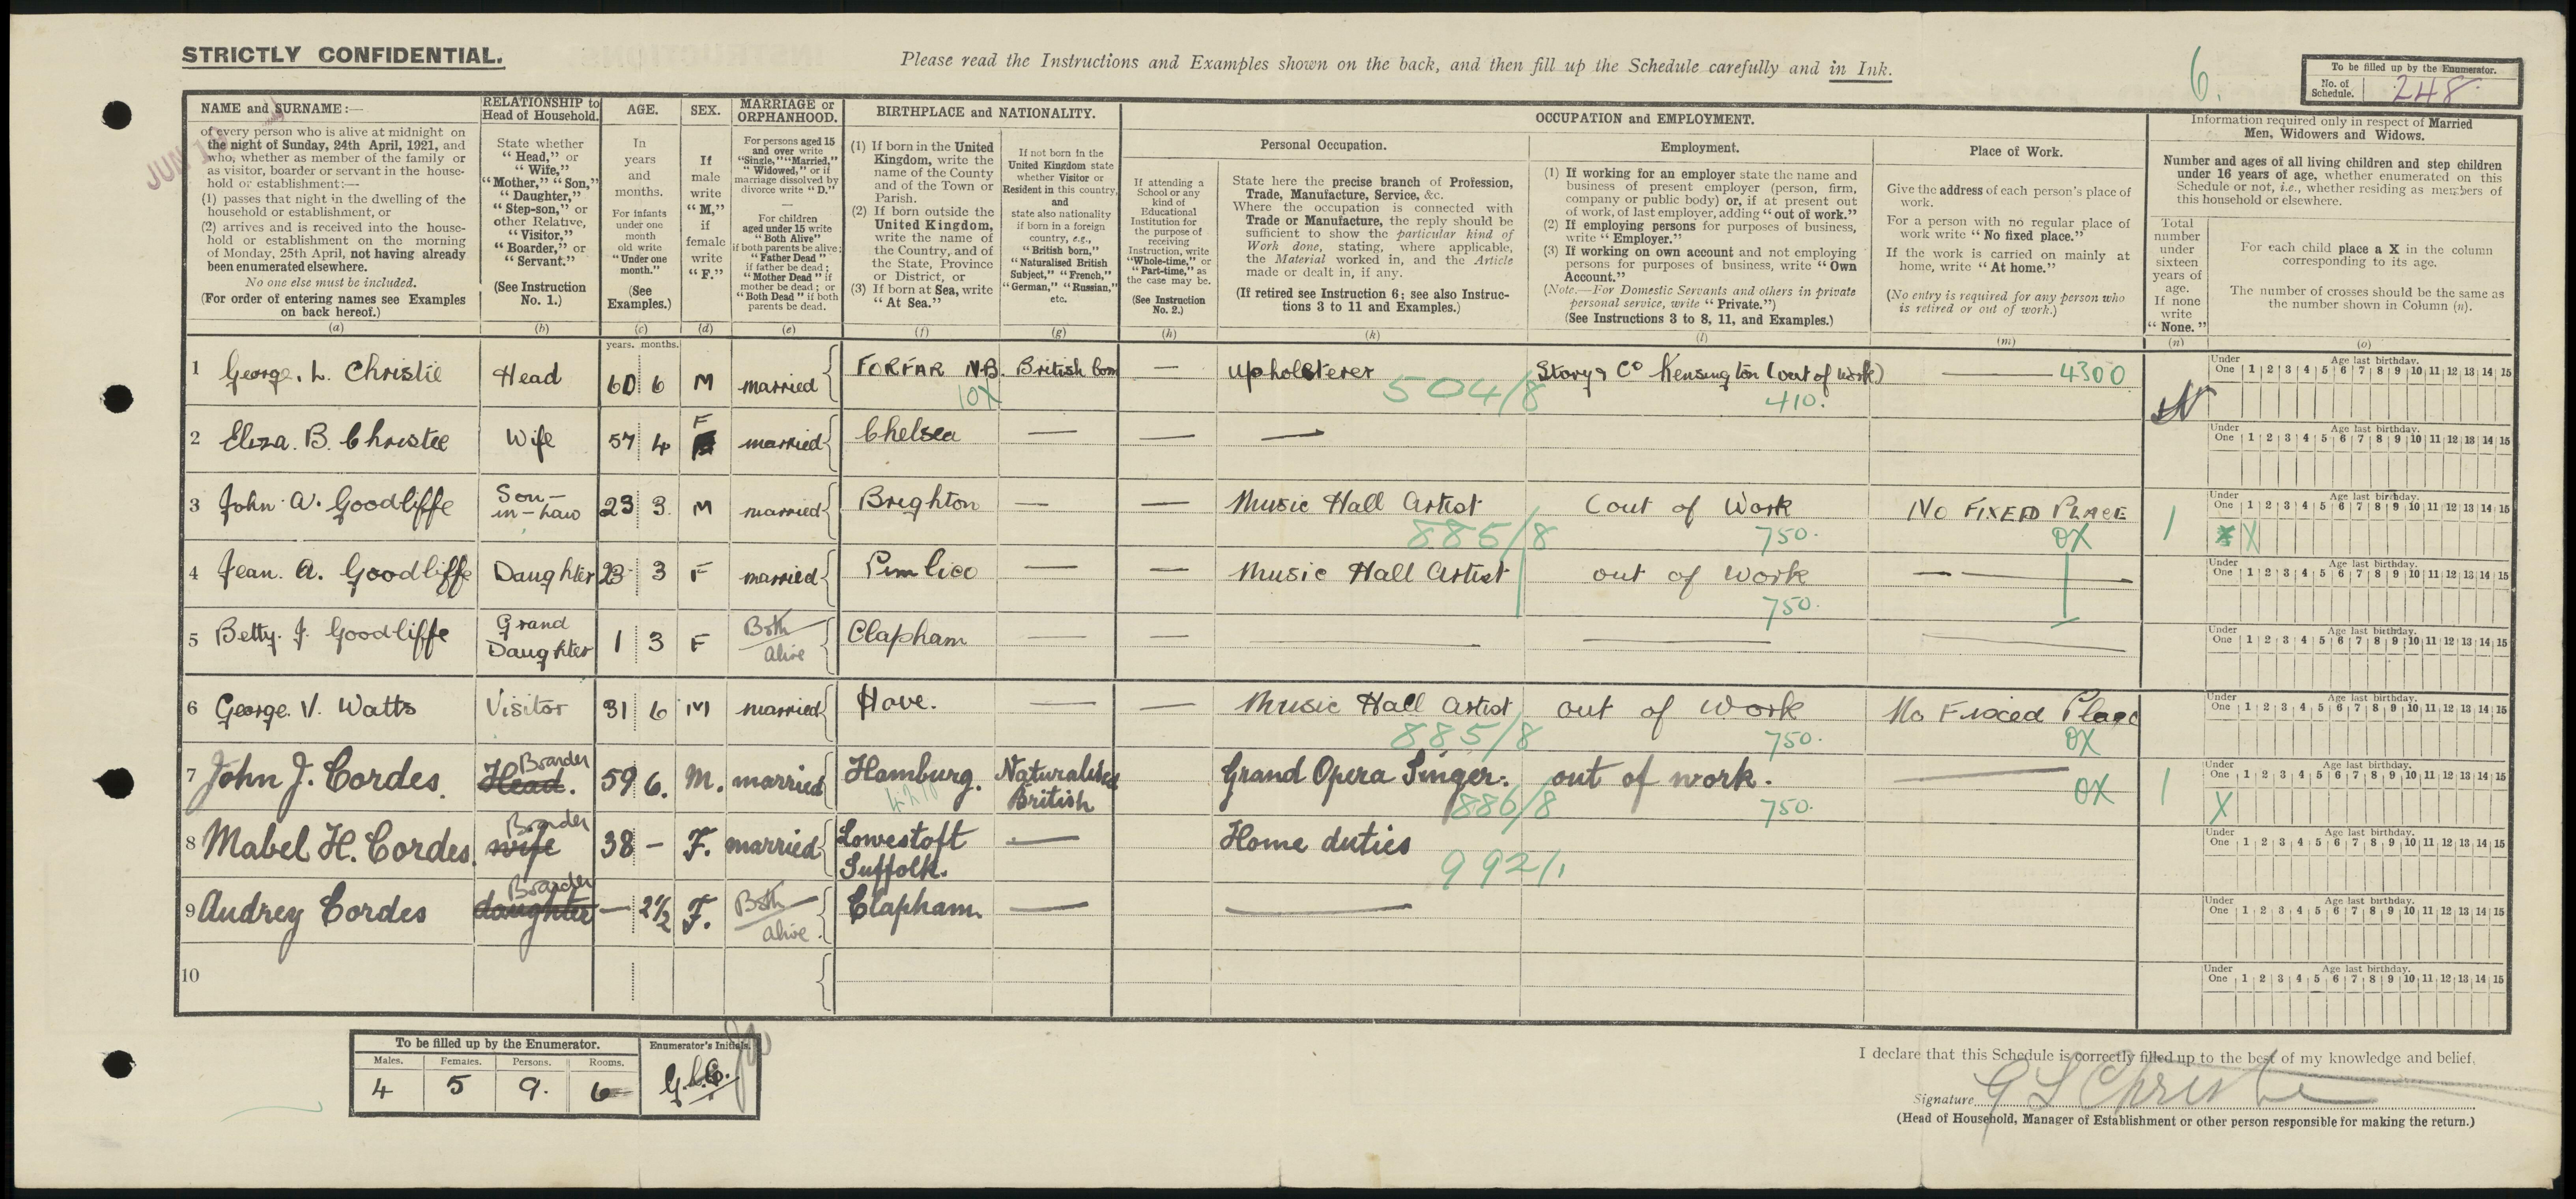 STRICTLY CONFIDENTIAL.
Please read the Instructions and Examples shown on the back, and then fill up the Schedule carefully and in Ink.
6.
To be filled up by the Enumerator.
No. of Schedule. 248
NAME and SURNAME:—
of every person who is alive at midnight on
the night of Sunday, 24th April, 1921, and
who, whether as member of the family or
as visitor, boarder or servant in the house-
hold or establishment:—
(1) passes that night in the dwelling of the
household or establishment, or
(2) arrives and is received into the house-
hold or establishment on the morning
of Monday, 25th April, not having already
been enumerated elsewhere.
No one else must be included.
(For order of entering names see Examples
on back hereof.)
(a)
RELATIONSHIP to
Head of Household.
State whether
"Head," or
"Wife,"
"Mother," "Son,"
"Daughter,"
"Step-son," or
other Relative,
"Visitor,"
"Boarder," or
"Servant."
(See Instruction
No. 1.)
(b)
AGE.
In
years
and
months.
For infants
under one
month
old write
"Under one
month."
(See
Examples.)
(c)
SEX.
If
male
write
"M,"
if
female
write
"F."
(d)
MARRIAGE or
ORPHANHOOD.
For persons aged 15
and over write
"Single," "Married,"
"Widowed," or if
marriage dissolved by
divorce write "D."
—
For children
aged under 15 write
"Both Alive"
if both parents be alive;
"Father Dead"
if father be dead;
"Mother Dead" if
mother be dead; or
"Both Dead" if both
parents be dead.
(e)
BIRTHPLACE and NATIONALITY.
(1) If born in the United
Kingdom, write the
name of the County
and of the Town or
Parish.
(2) If born outside the
United Kingdom,
write the name of
the Country, and of
the State, Province
or District, or
(3) If born at Sea, write
"At Sea."
(f)
If not born in the
United Kingdom state
whether Visitor or
Resident in this country,
and
state also nationality
if born in a foreign
country, e.g.,
"British born,"
"Naturalised British
Subject," "French,"
"German," "Russian,"
etc.
(g)
OCCUPATION and EMPLOYMENT.
If attending a
School or any
kind of
Educational
Institution for
the purpose of
receiving
Instruction, write
"Whole-time," or
"Part-time," as
the case may be.
(See Instruction
No. 2.)
(h)
Personal Occupation.
State here the precise branch of Profession,
Trade, Manufacture, Service, &c.
Where the occupation is connected with
Trade or Manufacture, the reply should be
sufficient to show the particular kind of
Work done, stating, where applicable,
the Material worked in, and the Article
made or dealt in, if any.
(If retired see Instruction 6; see also Instruc-
tions 3 to 11 and Examples.)
(k)
Employment.
(1) If working for an employer state the name and
business of present employer (person, firm,
company or public body) or, if at present out
of work, of last employer, adding "out of work."
(2) If employing persons for purposes of business,
write "Employer."
(3) If working on own account and not employing
persons for purposes of business, write "Own
Account."
(Note.—For Domestic Servants and others in private
personal service, write "Private.")
(See Instructions 3 to 8, 11, and Examples.)
(l)
Place of Work.
Give the address of each person's place of
work.
For a person with no regular place of
work write "No fixed place."
If the work is carried on mainly at
home, write "At home."
(No entry is required for any person who
is retired or out of work.)
(m)
Information required only in respect of Married
Men, Widowers and Widows.
Number and ages of all living children and step children
under 16 years of age, whether enumerated on this
Schedule or not, i.e., whether residing as members of
this household or elsewhere.
Total
number
under
sixteen
years of
age.
If none
write
"None."
(n)
For each child place a X in the column
corresponding to its age.
The number of crosses should be the same as
the number shown in Column (n).
(o)
years. months.
1 George. L. Christie Head 60 6 M married FORFAR N.B. British born — upholsterer Story & Co Kensington (out of work) —
10X 504/8 410. 4300
Under One Age last birthday. 1 2 3 4 5 6 7 8 9 10 11 12 13 14 15
2 Eliza. B. Christie Wife 57 4 F married Chelsea — — —
Under One Age last birthday. 1 2 3 4 5 6 7 8 9 10 11 12 13 14 15
3 John A. Goodliffe Son-in-Law 23 3 M married Brighton — — Music Hall Artist (out of Work No FIXED PLACE 1
885/8 750. 0X X X
Under One Age last birthday. 1 2 3 4 5 6 7 8 9 10 11 12 13 14 15
4 Jean. A. Goodliffe Daughter 23 3 F married Pimlico — — Music Hall Artist out of work —
750.
Under One Age last birthday. 1 2 3 4 5 6 7 8 9 10 11 12 13 14 15
5 Betty. J. Goodliffe Grand Daughter 1 3 F Both alive Clapham — — — — —
Under One Age last birthday. 1 2 3 4 5 6 7 8 9 10 11 12 13 14 15
6 George. V. Watts Visitor 31 6 M married Hove. — — Music Hall Artist out of Work No Fixed Place
885/8 750. 0X
Under One Age last birthday. 1 2 3 4 5 6 7 8 9 10 11 12 13 14 15
7 John J. Cordes. Head. Boarder 59 6. M. married Hamburg. Naturalised British Grand Opera Singer. out of work. — 1
886/8 750. 0X X
Under One Age last birthday. 1 2 3 4 5 6 7 8 9 10 11 12 13 14 15
8 Mabel H. Cordes. wife Boarder 38 — F. married Lowestoft Suffolk. — Home duties
992/1
Under One Age last birthday. 1 2 3 4 5 6 7 8 9 10 11 12 13 14 15
9 Audrey Cordes daughter Boarder — 2½ F. Both alive. Clapham. — —
Under One Age last birthday. 1 2 3 4 5 6 7 8 9 10 11 12 13 14 15
10
Under One Age last birthday. 1 2 3 4 5 6 7 8 9 10 11 12 13 14 15
To be filled up by the Enumerator. Enumerator's Initials.
Males. Females. Persons. Rooms.
4 5 9. 6
I declare that this Schedule is correctly filled up to the best of my knowledge and belief.
Signature G L Christie
(Head of Household, Manager of Establishment or other person responsible for making the return.)